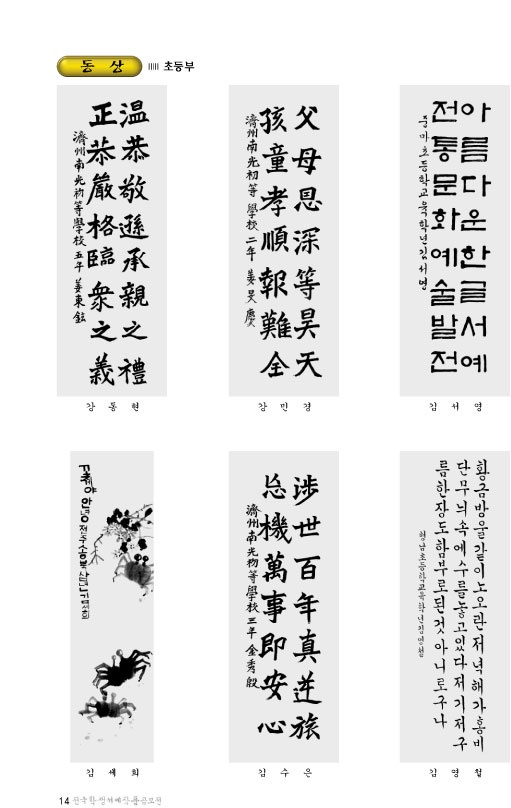 동 상 초등부
温恭敬遜承親之禮
正恭嚴格臨衆之義
濟州南光初等學校 五年 姜東鉉
강 동 현
父母恩深等昊天
孩童孝順報難全
濟州南光初等學校 二年 姜旻慶
강 민 경
아름다운한글서예
전통문화예술발전
초등학교육학년김서영
김 서 영
꽃게야 안녕
김 세 희
涉世百年真逆旅
忘機萬事即安心
濟州南光初等學校 三年 金秀殷
김 수 은
황금방울같이노오란저녁해가홍비
단무늬속에수를놓고있다저기저구
름한장도함부로된것아니로구나
초등학교육학년김영철
김 영 철
14 전국학생서예작품공모전